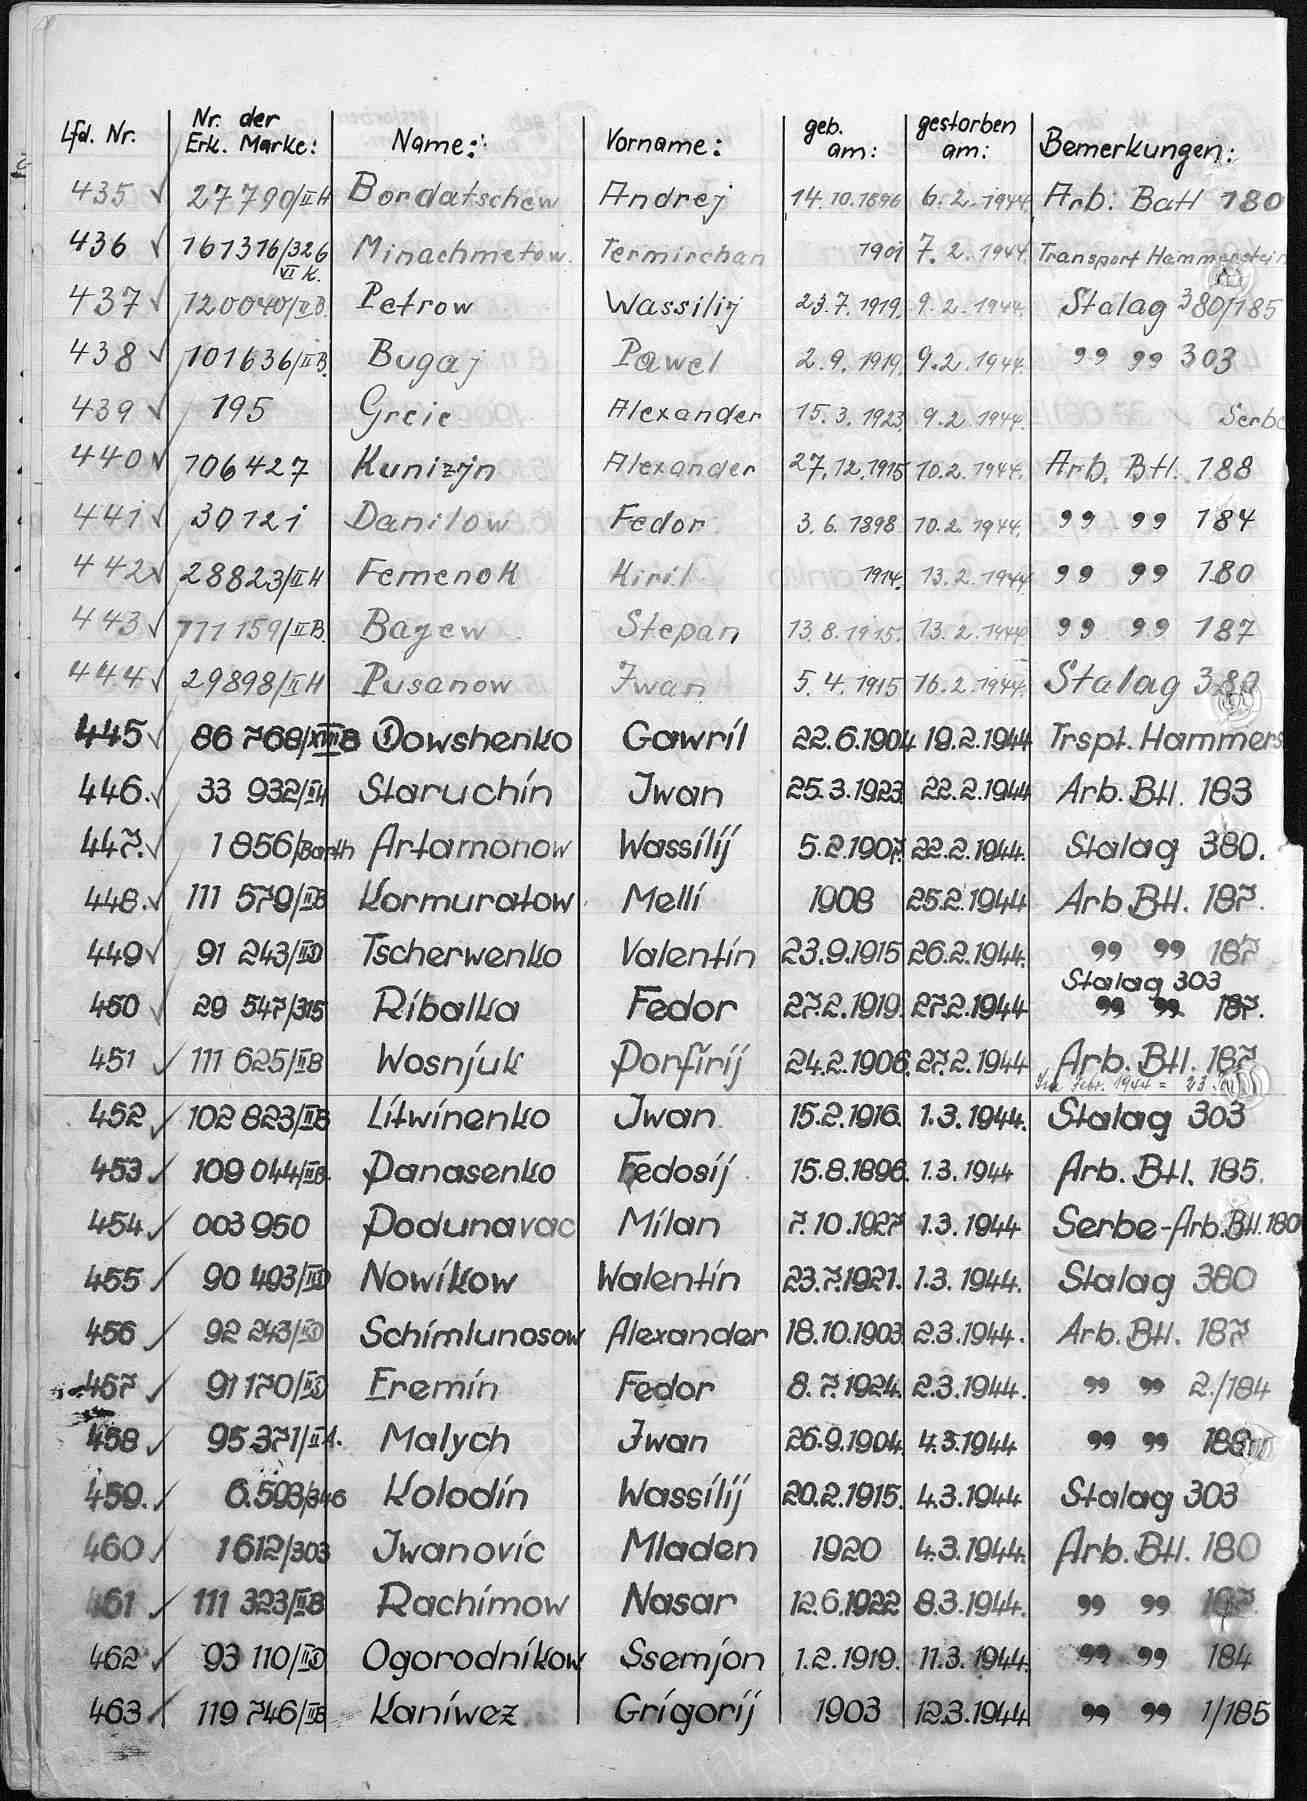 Lfd. Nr. Nr. der Erk. Marke: Name: Vorname: geb. am: gestorben am: Bemerkungen:
435 ✓ 27790/II H Bordatschew Andrej 14.10.1896 6.2.1944. Arb. Batl 180
436 ✓ 161316/326 VI K. Minachmetow. Termirchan 1901 7.2.1944. Transport Hammerstein
437 ✓ 120040/II B. Petrow Wassilij 23.7.1919. 9.2.1944. Stalag 380/185
438 ✓ 101636/II B. Bugaj Pawel 2.9.1919. 9.2.1944. " " 303
439 ✓ 195 Greie Alexander 15.3.1923. 9.2.1944. Serbe
440 ✓ 106427 Kunizijn Alexander 27.12.1915 10.2.1944. Arb. Btl. 188
441 ✓ 30121 Danilow Fedor 3.6.1898 10.2.1944. " " 184
442 ✓ 28823/II H Femenok Kiril 1914. 13.2.1944 " " 180
443 ✓ 111159/II B. Bajew Stepan 13.8.1915. 13.2.1944 " " 187
444 ✓ 29898/II H Pusanow Iwan 5.4.1915 16.2.1944. Stalag 380
445 ✓ 86 768/XVIIB Dowshenko Gawril 22.6.1904 19.2.1944 Trspt. Hammers
446. ✓ 33 932/II H Staruchin Iwan 25.3.1923 22.2.1944 Arb. Btl. 183
447. ✓ 1 856/Barth Artamonow Wassilij 5.2.1907. 22.2.1944. Stalag 380.
448. ✓ 111 579/II B Kormuratow Melli 1908 25.2.1944 Arb Btl. 187.
449 ✓ 91 243/II D Tscherwenko Valentin 23.9.1915 26.2.1944. " " 187
Stalag 303
450 ✓ 29 547/315 Ribalka Fedor 27.2.1919. 27.2.1944 " " 187.
451 ✓ 111 625/II B Wosnjuk Porfirij 24.2.1906. 27.2.1944 Arb. Btl. 187
Febr. 1944 = 23
452 ✓ 102 823/II B Litwinenko Iwan 15.2.1916. 1.3.1944. Stalag 303
453 ✓ 109 044/II B. Panasenko Fedosij 15.8.1896. 1.3.1944 Arb. Btl. 185.
454 ✓ 003 950 Podunavac Milan 7.10.1927 1.3.1944 Serbe-Arb. Btl. 180
455 ✓ 90 493/II D Nowikow Walentin 23.7.1921. 1.3.1944. Stalag 380
456 ✓ 92 243/II D Schimlunosow Alexander 18.10.1903 2.3.1944. Arb. Btl. 187
457 ✓ 91 170/II D Eremin Fedor 8.7.1924. 2.3.1944. " " 2./184
458 ✓ 95 371/II A. Malych Iwan 26.9.1904. 4.3.1944 " " 188
459. ✓ 6.593/346 Kolodin Wassilij 20.2.1915. 4.3.1944 Stalag 303
460 ✓ 1 612/303 Iwanovic Mladen 1920 4.3.1944. Arb. Btl. 180
461 ✓ 111 323/II B Rachimow Nasar 12.6.1922 8.3.1944. " " 187.
462 ✓ 93 110/II D Ogorodnikow Ssemjon 1.2.1919. 11.3.1944. " " 184
463 ✓ 119 746/II B Kaniwez Grigorij 1903 12.3.1944 " " 1/185